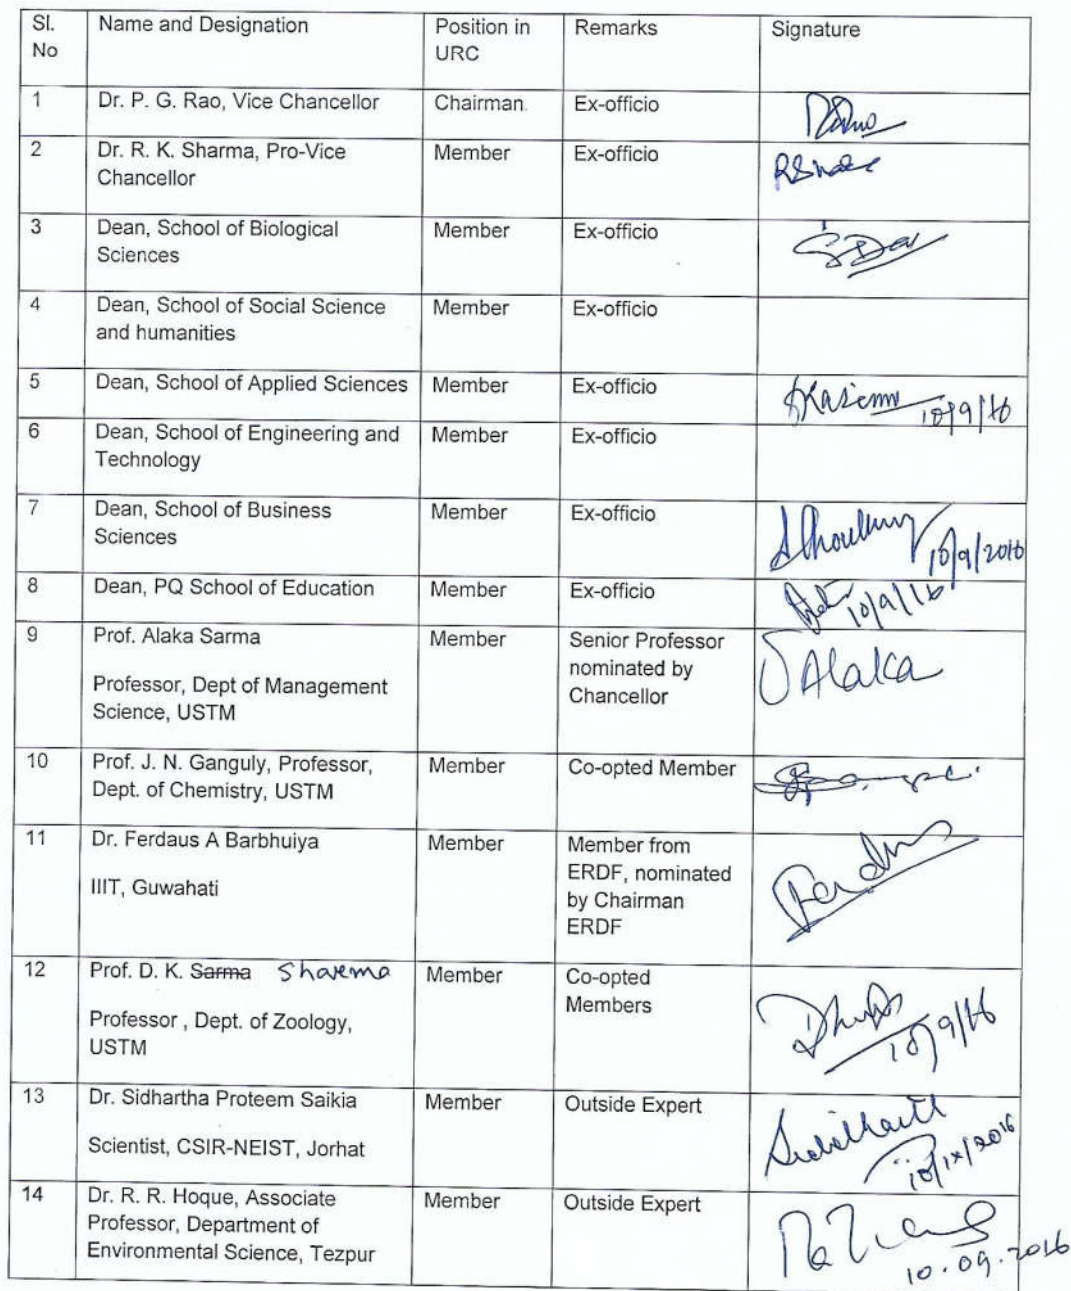 Sl. No Name and Designation Position in URC Remarks Signature
1 Dr. P. G. Rao, Vice Chancellor Chairman Ex-officio
2 Dr. R. K. Sharma, Pro-Vice Chancellor Member Ex-officio
3 Dean, School of Biological Sciences Member Ex-officio
4 Dean, School of Social Science and humanities Member Ex-officio
5 Dean, School of Applied Sciences Member Ex-officio 10/9/16
6 Dean, School of Engineering and Technology Member Ex-officio
7 Dean, School of Business Sciences Member Ex-officio 10/9/2016
8 Dean, PQ School of Education Member Ex-officio 10/9/16
9 Prof. Alaka Sarma
Professor, Dept of Management Science, USTM Member Senior Professor nominated by Chancellor Alaka
10 Prof. J. N. Ganguly, Professor, Dept. of Chemistry, USTM Member Co-opted Member
11 Dr. Ferdaus A Barbhuiya
IIIT, Guwahati Member Member from ERDF, nominated by Chairman ERDF
12 Prof. D. K. Sarma Sharma
Professor , Dept. of Zoology, USTM Member Co-opted Members 10/9/16
13 Dr. Sidhartha Proteem Saikia
Scientist, CSIR-NEIST, Jorhat Member Outside Expert
14 Dr. R. R. Hoque, Associate Professor, Department of Environmental Science, Tezpur Member Outside Expert 10.09.2016